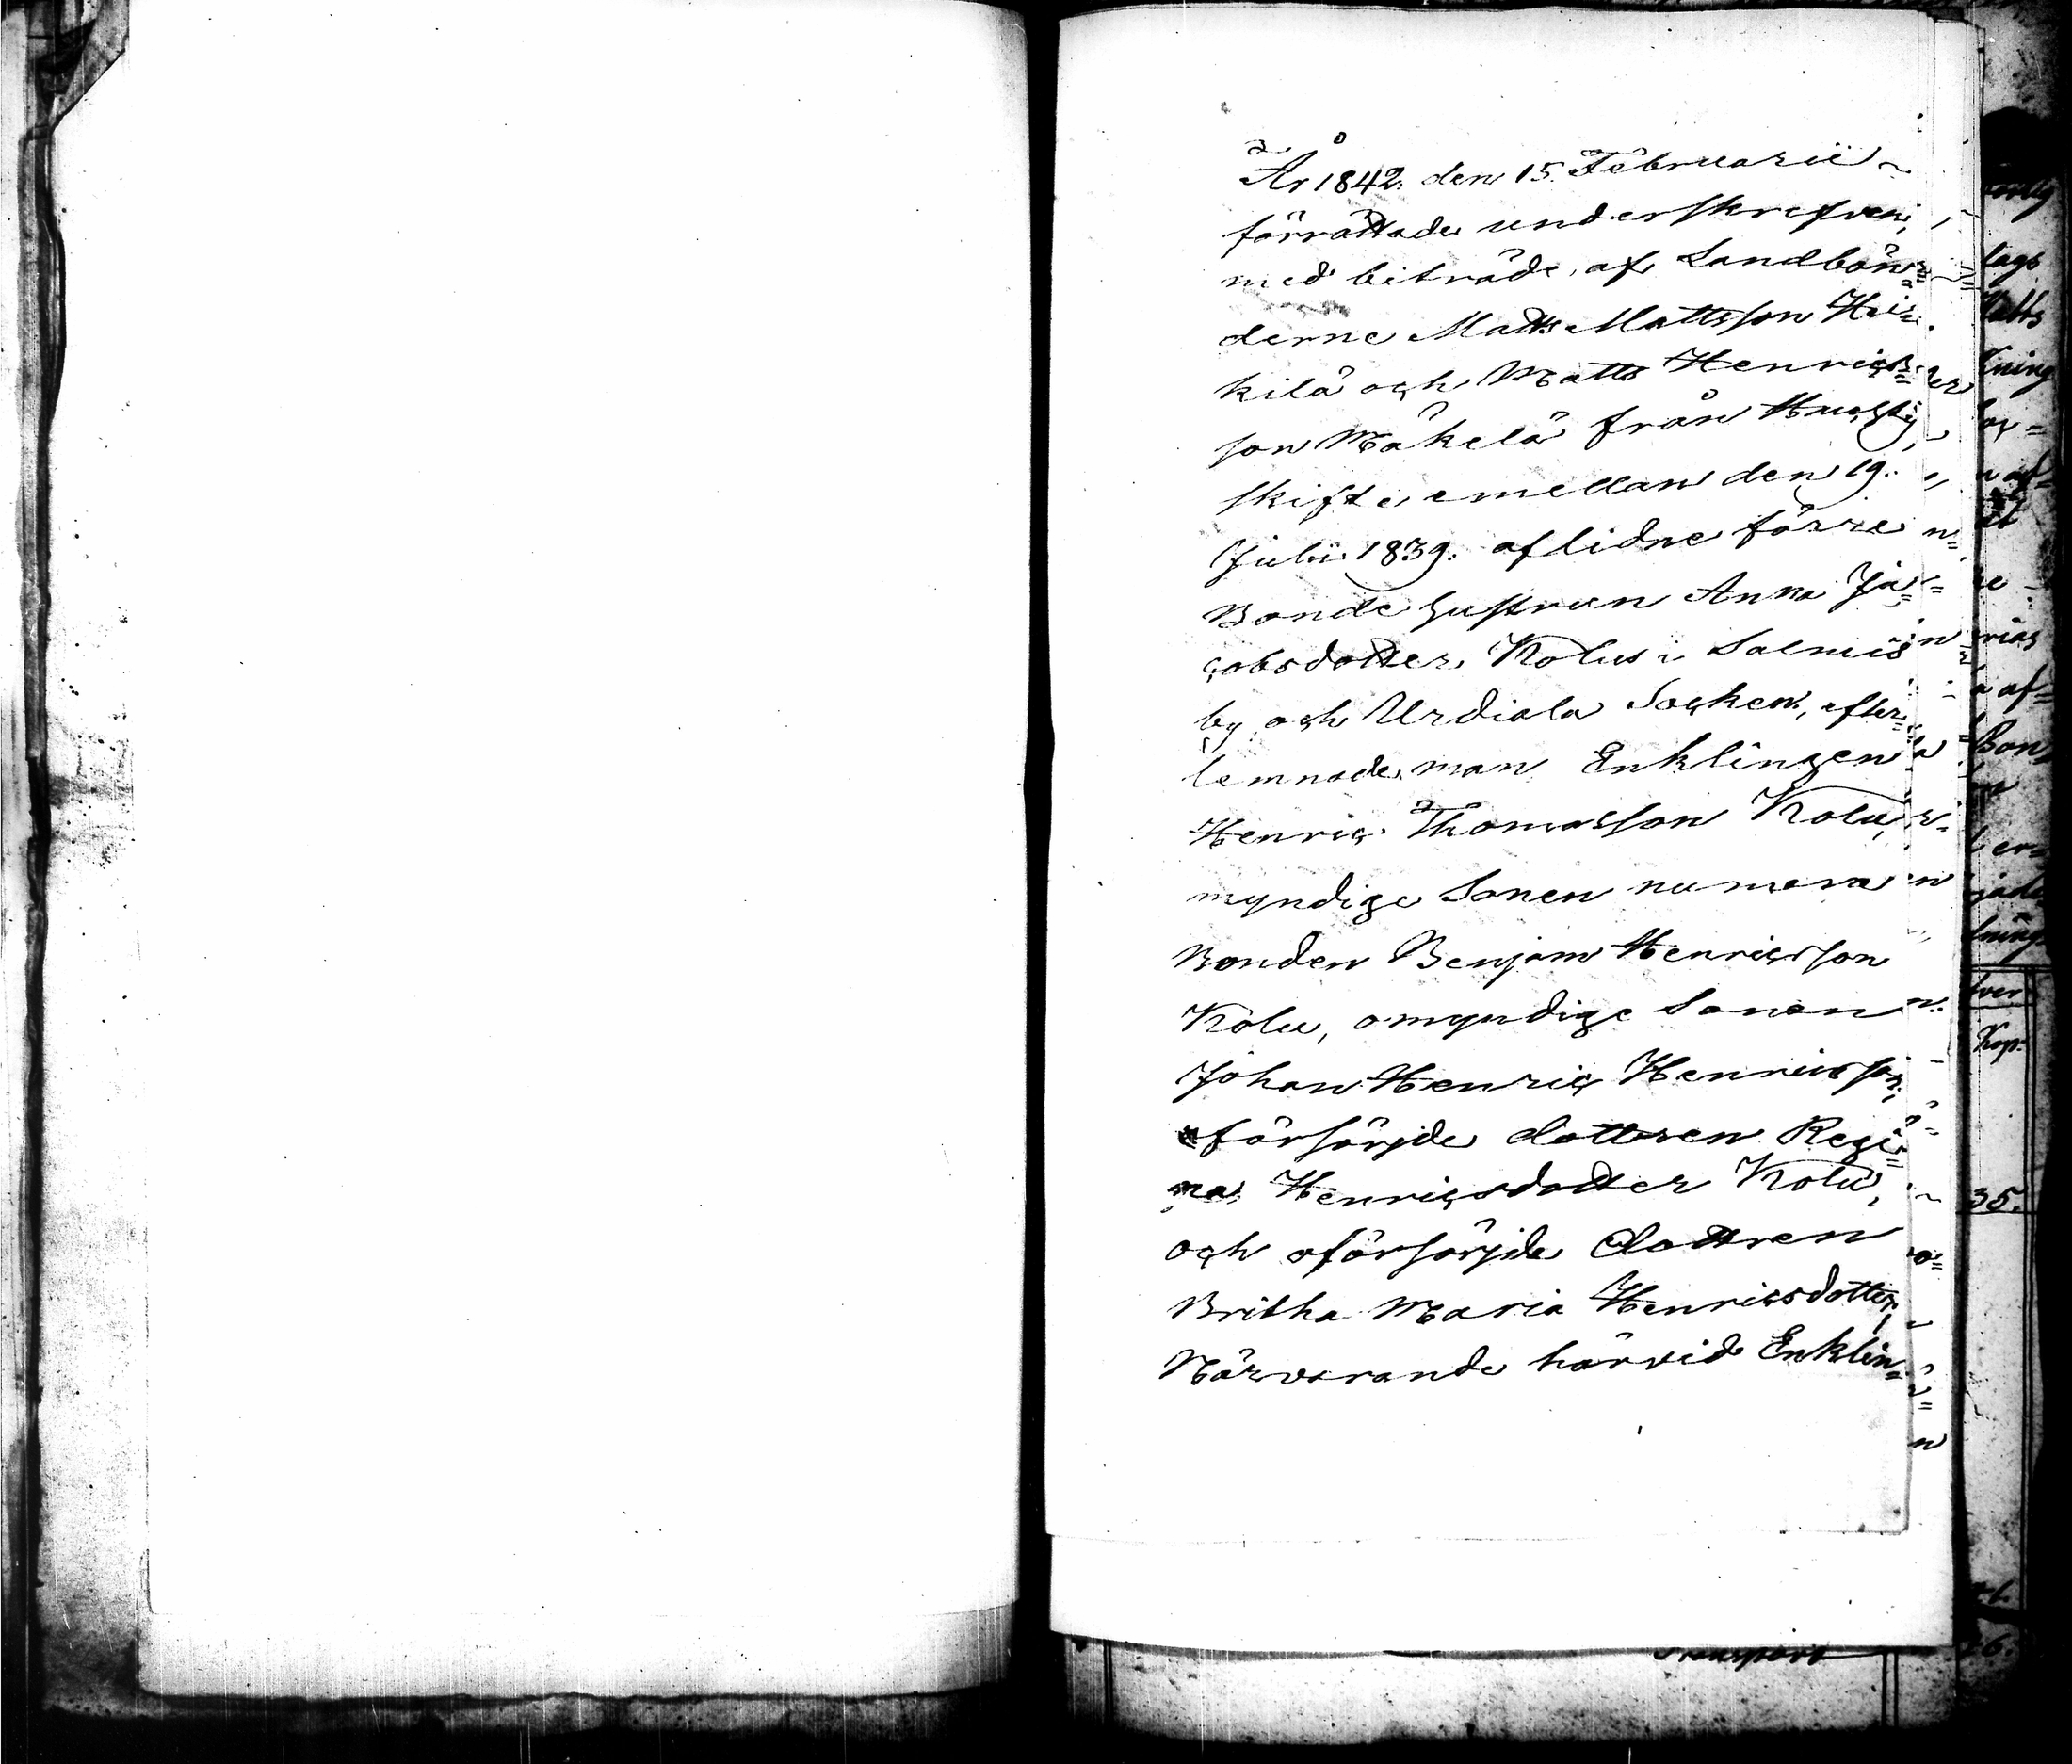 År 1842. den 15. Februarii
förrättade underskrefven,
med biträde af Landbön=
derne Matts Mattsson Hei=
kilä och Matts Henrics=
son Mäkelä från Huhti,
skifte emellan den 19.
Julii 1839. aflidne förre
Bonde hustrun Anna Ja=
cobsdotter Kolus i Salmis
by och Urdiala Socken, efter=
lemnade man Enklingen
Henric Thomasson Kolu,
myndige Sonen numera
Bonden Benjam Henricsson
Kolu, omyndige Sonen
Johan Henric Henricsson,
försörjde dottren Regi=
na Henricsdotter Kolu,
och oförsörjde dottren
Britha Maria Henricsdotter,
Närvarande härvid Enklin=
lags
Matts
Kop.
35.
Transport